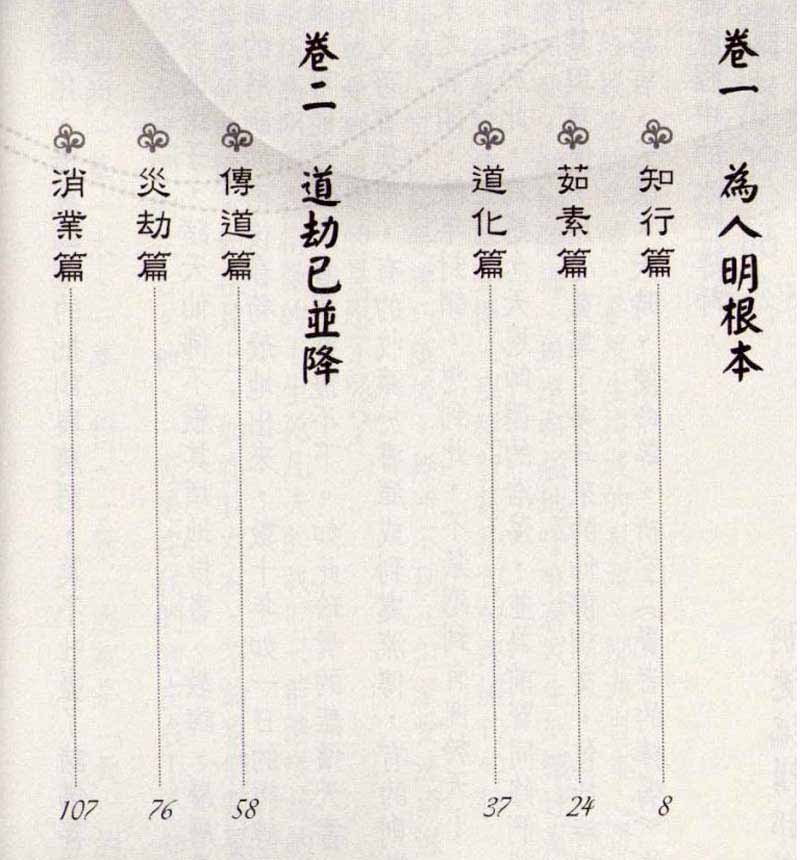 卷一 為人明根本
知行篇 8
茹素篇 24
道化篇 37
卷二 道劫已並降
傳道篇 58
災劫篇 76
消業篇 107